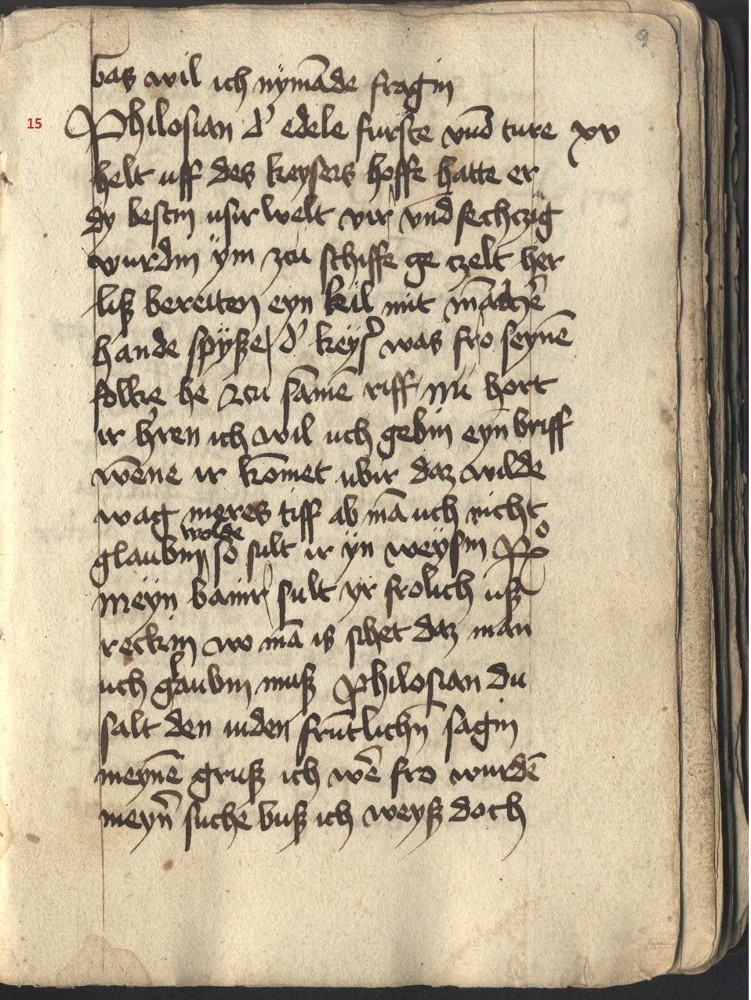 9
bas wil ich nymāde fragin
15 Philosian d' edele furste vnd ture xv
helt uff des keysers hoffe hatte er
dy bestin usir welt vir vnd sechczig
wurdin ÿm zcu schiffe ge czelt her
liß bereiten eyn kil mit māchē
hande spÿße d' keys' was fro seynē
folke he zcu sāme riff nu hort
ir h'ren ich wil uch gebin eyn briff
wēne ir kōmet ubir daz wilde
wag meres tiff ab mā uch nicht
wolde
glaubin so sult ir yn weysin
meyn banir sult yr frolich uß
reckin wo mā is sihet daz man
uch glaubin muß Philosian du
salt den iuden frūtlichn sagin
meynē gruß ich wē fro wurdē
meyn suche buß ich weyß doch